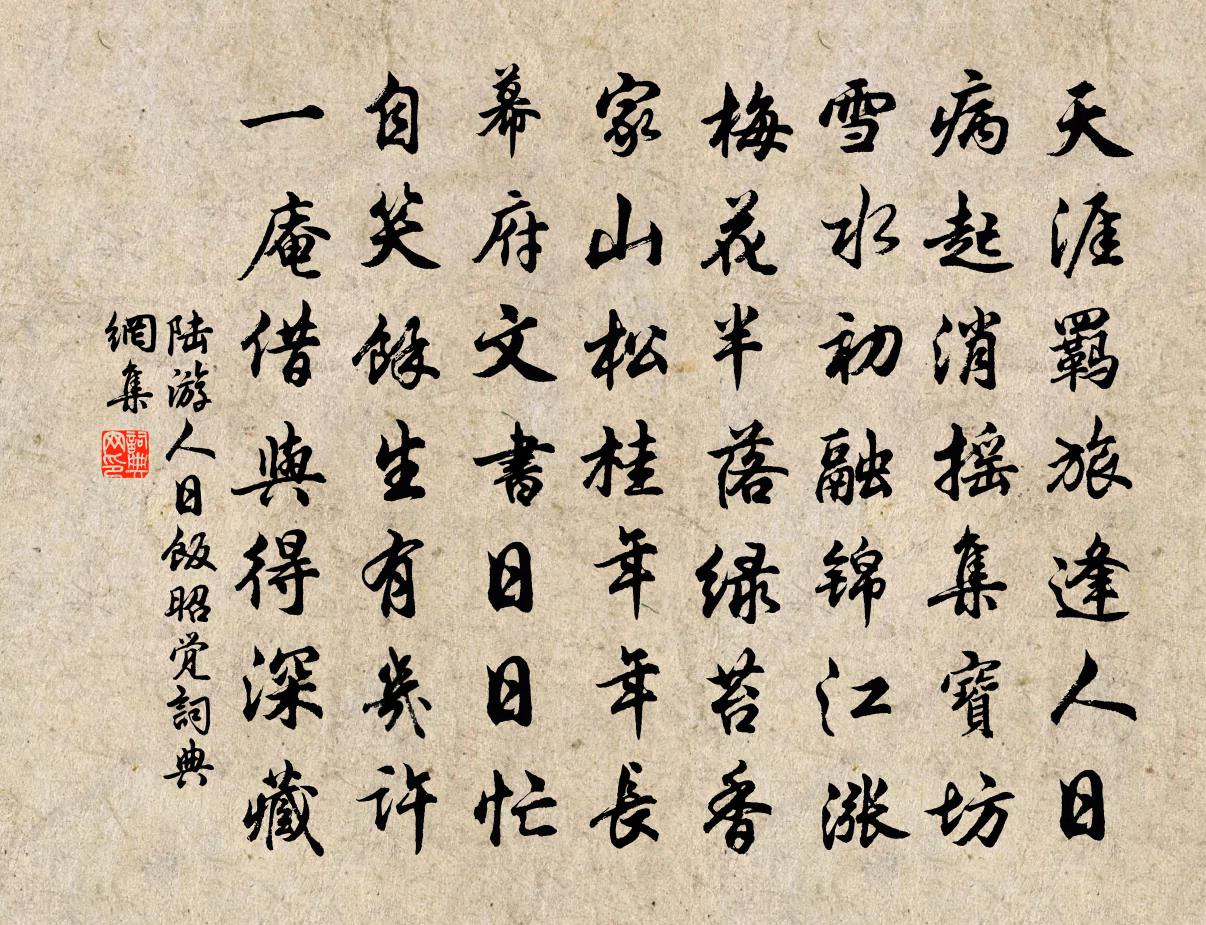 天涯羁旅逢人日
病起消摇集寶坊
雪水初融锦江涨
梅花半落绿苔香
家山松桂年年長
幕府文書日日忙
自笑餘生有幾許
一庵借與得深藏
陆游人日飯昭觉詞典
網集
詞典网印